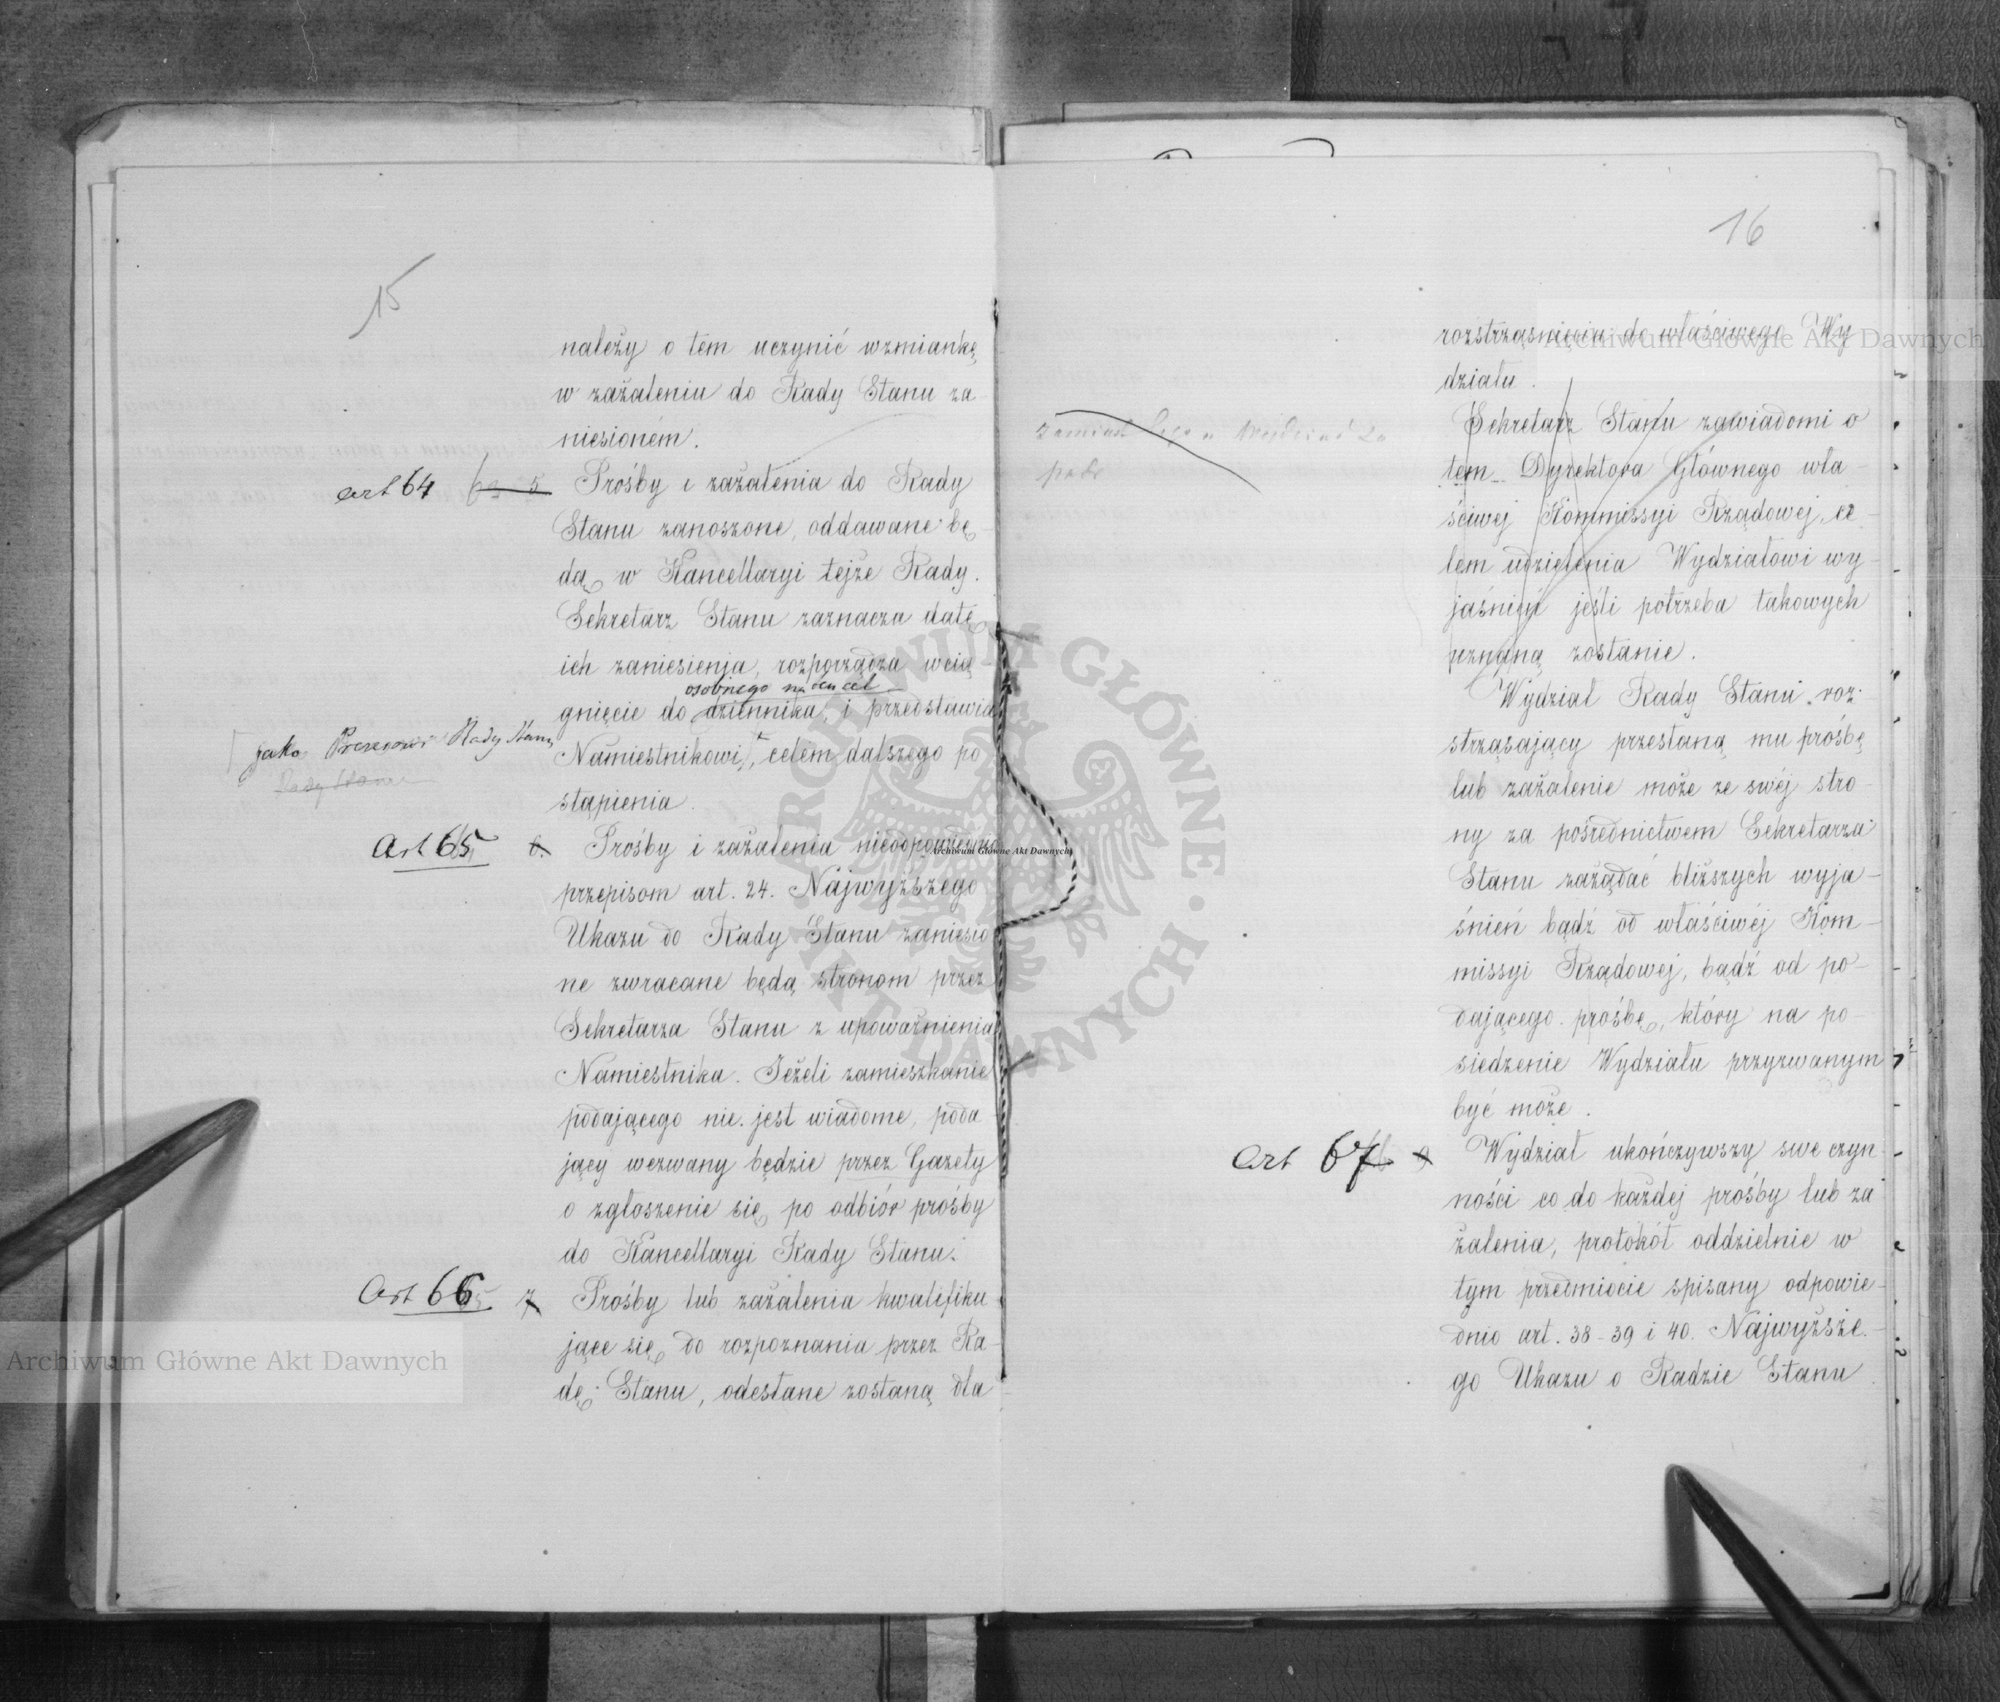 15
należy o tem uczynić wzmiankę
w zażaleniu do Rady Stanu za
niesioném.
art 64 63 5 Prośby i zażalenia do Rady
Stanu zanoszone, oddawane bę-
dą w Kancellaryi tejże Rady.
Sekretarz Stanu zaznacza datę
ich zaniesienia, rozporządza wcią
osobnego
gnięcie do dziennika, i przedstawia
jako Prezesowi Rady Stanu
Namiestnikowi, celem dalszego po
Rady Stanu
stąpienia.
Art 65 6. Prośby i zażalenia nieodpowiednio
przepisom art. 24. Najwyższego
Ukazu do Rady Stanu zaniesio
ne zwracane będą stronom przez
Sekretarza Stanu z upoważnienia
Namiestnika. Jeżeli zamieszkanie
podającego nie jest wiadome, poda
jący wezwany będzie przez Gazety
o zgłoszenie się po odbiór prośby
do Kancellaryi Rady Stanu.
Art 66 7 Prośby lub zażalenia kwalifiku
jące się do rozpoznania przez Ra-
dę Stanu, odesłane zostaną dla
16
rozstrząśnięcia do właściwego Wy
działu.
Sekretarz Stanu zawiadomi o
zamiast
tem Dyrektora Głównego wła-
ściwej Kommissyi Rządowej, ce
lem udzielenia Wydziałowi wy
jaśnień jeśli potrzeba takowych
uznaną zostanie.
Wydział Rady Stanu roz-
strząsający przesłaną mu prośbę
lub zażalenie może ze swéj stro-
ny za pośrednictwem Sekretarza
Stanu zażądać bliższych wyja-
śnień bądź od właściwéj Kom-
missyi Rządowej, bądź od po-
dającego prośbę, który na po-
siedzenie Wydziału przyzwanym
być może.
Art 67 Wydział ukończywszy swe czyn-
ności co do każdej prośby lub za
żalenia, protokół oddzielnie w
tym przedmiocie spisany odpowie-
dnio art. 38-39 i 40. Najwyższe-
go Ukazu o Radzie Stanu
Archiwum Główne Akt Dawnych
Archiwum Główne Akt Dawnych
Archiwum Główne Akt Dawnych
ARCHIWUM GŁÓWNE AKT DAWNYCH